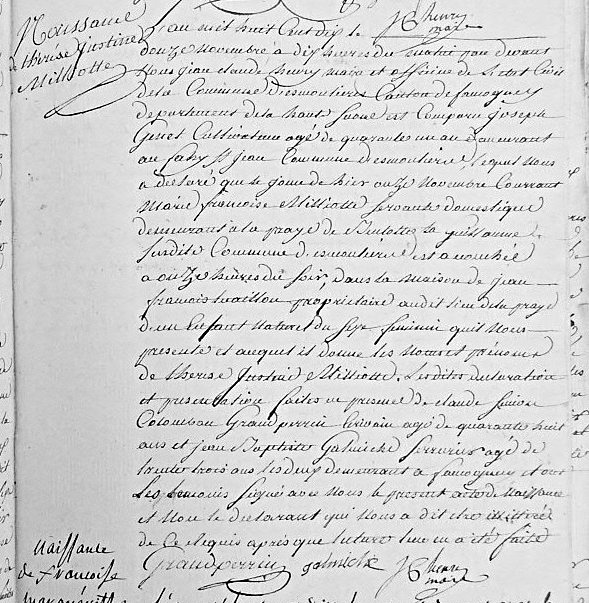 Naissance
de therèse justine
Milliotte
JC henry
maire
L'an mil huit Cent dix le
douze Novembre à dix heures du matin par devant
Nous jean claude henry maire et officier de l'etat Civil
de la Commune d'esmoulieres Canton de faucogney
departement de la haute Saone est Comparu joseph
Cultivateur agé de quarante un an demeurant
au St jean Commune d'esmoulieres, lequel Nous
a declaré que le jour de hier onze Novembre Courrant
Marie françoise Milliotte servante domestique
demeurant à la praye de la guillaume
Susdite Commune d'esmoulieres est accouchée
a onze heures du soir, dans la maison de jean
françois proprietaire audit lieu de la praye
d'un Enfant Naturel du sexe feminin qu'il Nous
presente et auquel il donne les Noms et prénoms
de therese Justine Milliotte. Lesdites declaration
et presentation faites en presence de claude
Colomban Grandperrin Ecrivain agé de quarante huit
ans et jean Baptiste Galmiche Serrurier agé de
trente trois ans les deux demeurant a faucogney et ont
Les temoins signé avec Nous le present acte de Naissance
et Non le declarant qui Nous a dit etre illitéré
de Ce Requis après que lecture leur en a été faite
Grandperrin galmiche JC henry
maire
Naissance
de francoise
marguerite